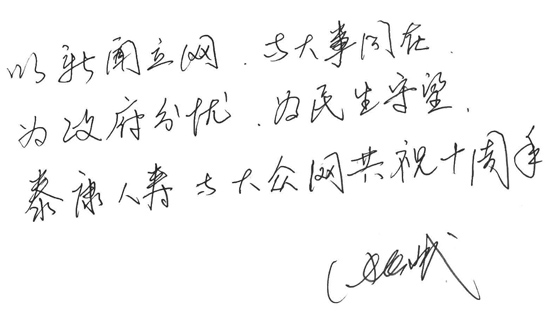 以新闻立网、与大事同在、
为政府分忧、为民生守望、
泰康人寿与大众网共祝十周年